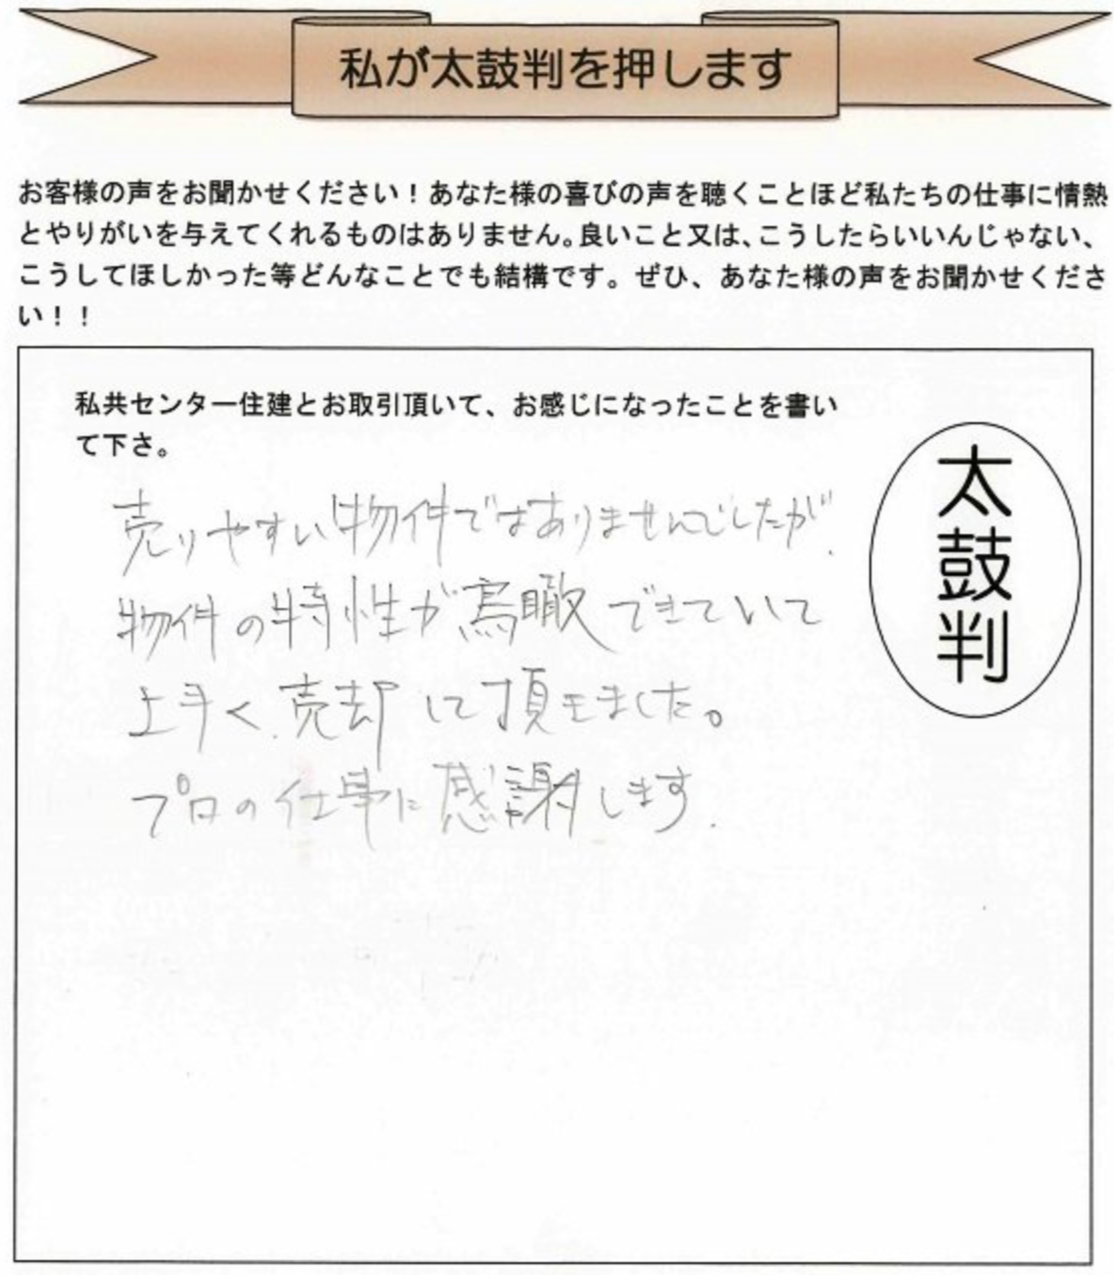 私が太鼓判を押します
お客様の声をお聞かせください！あなた様の喜びの声を聴くことほど私たちの仕事に情熱
とやりがいを与えてくれるものはありません。良いこと又は、こうしたらいいんじゃない、
こうしてほしかった等どんなことでも結構です。ぜひ、あなた様の声をお聞かせくださ
い！！
私共センター住建とお取引頂いて、お感じになったことを書い
て下さ。
太鼓判
売りやすい物件ではありませんでしたが、
物件の特性が鳥瞰できていて
上手く売却して頂きました。
プロの仕事に感謝します.